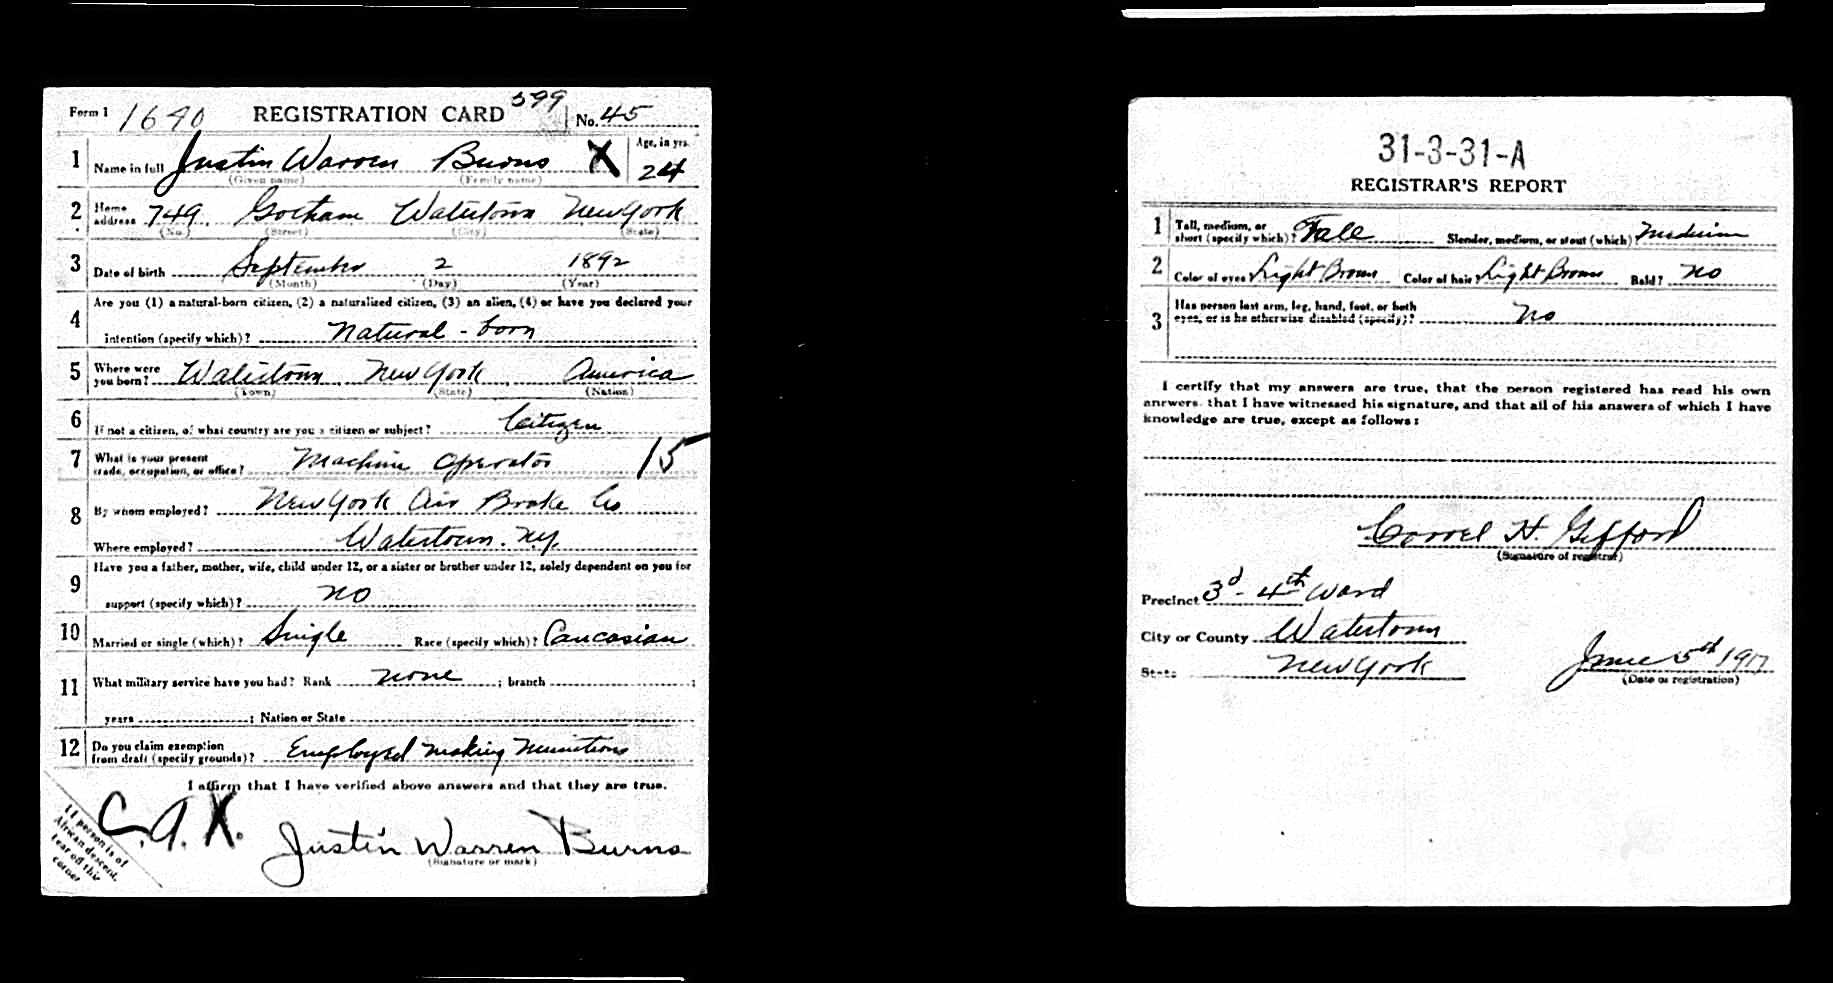 Form 1 1640 REGISTRATION CARD 599 No. 45
1 Name in full Justin Warren Burns X Age, in yrs. 24
(Given name) (Family name)
2 Home address 749 Gotham Watertown New York
(No.) (Street) (City) (State)
3 Date of birth September 2 1892
(Month) (Day) (Year)
4 Are you (1) a natural-born citizen, (2) a naturalized citizen, (3) an alien, (4) or have you declared your
intention (specify which)? Natural-born
5 Where were you born? Watertown, New York, America
(Town) (State) (Nation)
6 If not a citizen, of what country are you a citizen or subject? Citizen
7 What is your present trade, occupation, or office? Machine Operator 15
8 By whom employed? New York Air Brake Co
Where employed? Watertown. N.Y.
9 Have you a father, mother, wife, child under 12, or a sister or brother under 12, solely dependent on you for
support (specify which)? No
10 Married or single (which)? Single Race (specify which)? Caucasian
11 What military service have you had? Rank none ; branch ;
years ; Nation or State
12 Do you claim exemption from draft (specify grounds)? Employed making Munitions
I affirm that I have verified above answers and that they are true.
Justin Warren Burns
(Signature or mark)
If person is of
African descent,
tear off this
corner
31-3-31-A
REGISTRAR'S REPORT
1 Tall, medium, or short (specify which)? Tall Slender, medium, or stout (which)? Medium
2 Color of eyes Light Brown Color of hair? Light Brown Bald? No
3 Has person lost arm, leg, hand, foot, or both
eyes, or is he otherwise disabled (specify)? No
I certify that my answers are true, that the person registered has read his own
anrwers. that I have witnessed his signature, and that all of his answers of which I have
knowledge are true, except as follows:
H. Gifford
(Signature of registrar)
Precinct 3d - 4th Ward
City or County Watertown
State New York June 5th 1917
(Date of registration)